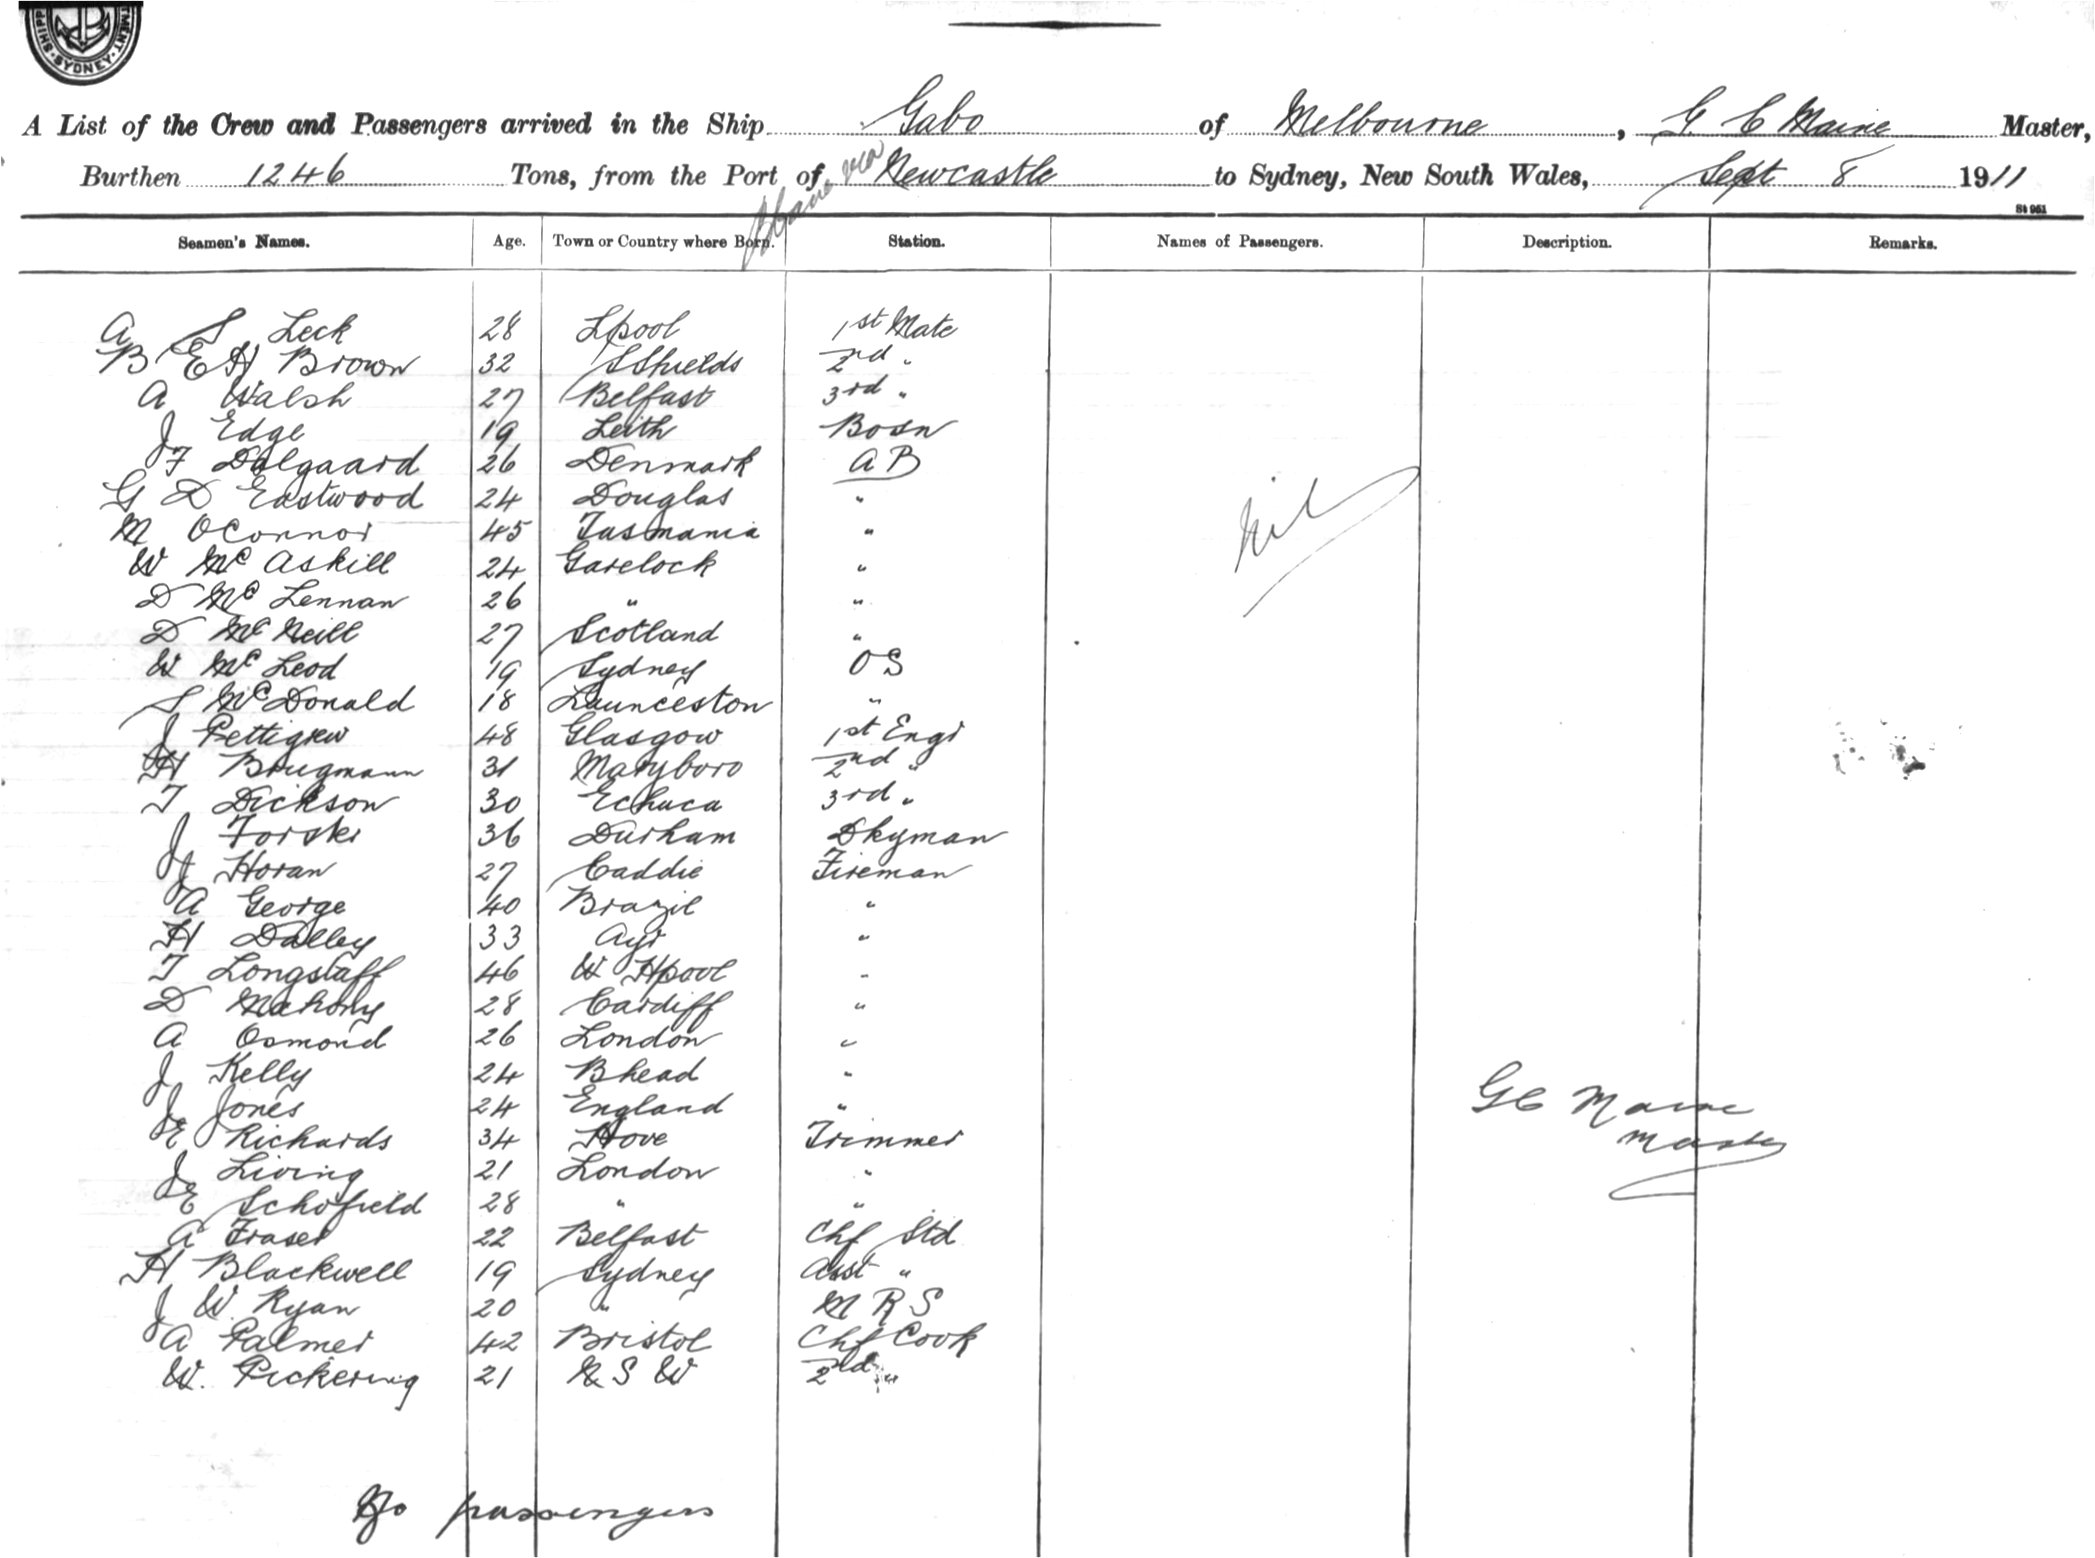 SHIPP MENT. SYDNEY.
A List of the Crew and Passengers arrived in the Ship Gabo of Melbourne, G. C Maine Master,
Burthen 1246 Tons, from the Port of Bbane via Newcastle to Sydney, New South Wales, Sept 8 1911
St 961
Seamen's Names. Age. Town or Country where Born. Station. Names of Passengers. Description. Remarks.
A S Leck 28 Lpool 1st Mate
B E H Brown 32 SShields 2nd "
A Walsh 27 Belfast 3rd "
J Edge 19 Leith Bosn
J F Dalgaard 26 Denmark A B
G D Eastwood 24 Douglas "
Nil
M OConnor 45 Tasmania "
W McAskill 24 Garelock "
D McLennan 26 " "
D McNeill 27 Scotland "
W McLeod 19 Sydney O S
S McDonald 18 Launceston "
J Pettigrew 48 Glasgow 1st Engr
H Brugmann 31 Maryboro 2nd "
T Dickson 30 Echuca 3rd "
J Forski 36 Durham Dkyman
J Horan 27 Caddie Fireman
A George 40 Brazil "
H Dalley 33 Ayr "
T Longstaff 46 W Hpool "
D Mahony 28 Cardiff "
A Osmond 26 London "
J Kelly 24 Bhead "
J Jones 24 England "
G C Maine
Master
E Richards 34 Hove Trimmer
J Living 21 London "
E Schofield 28 " "
A Fraser 22 Belfast Chf Std
H Blackwell 19 Sydney Asst "
J W. Ryan 20 " M R S
A Palmer 42 Bristol Chf Cook
W. Pickering 21 N S W 2nd "
No passengers